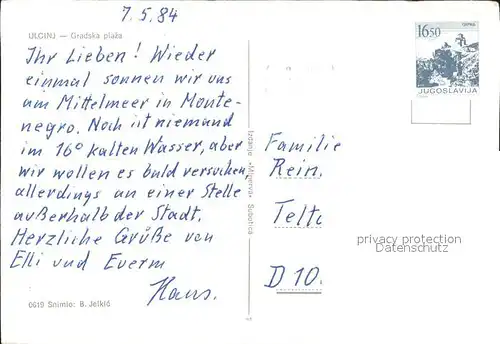 7.5.84
ULCINJ — Gradska plaža
Ihr Lieben! Wieder
einmal sonnen wir uns
am Mittelmeer in Monte-
negro. Noch ist niemand
im 16° kalten Wasser, aber
wir wollen es bald versuchen,
allerdings an einer Stelle
außerhalb der Stadt.
Herzliche Grüße von
Elli und Euerm
Hans.
0619 Snimio: B. Jelkić
Izdanje »Minerva« Subotica
16.50
JUGOSLAVIJA
Familie
Rein
Telto
D 10
privacy protection
Datenschutz